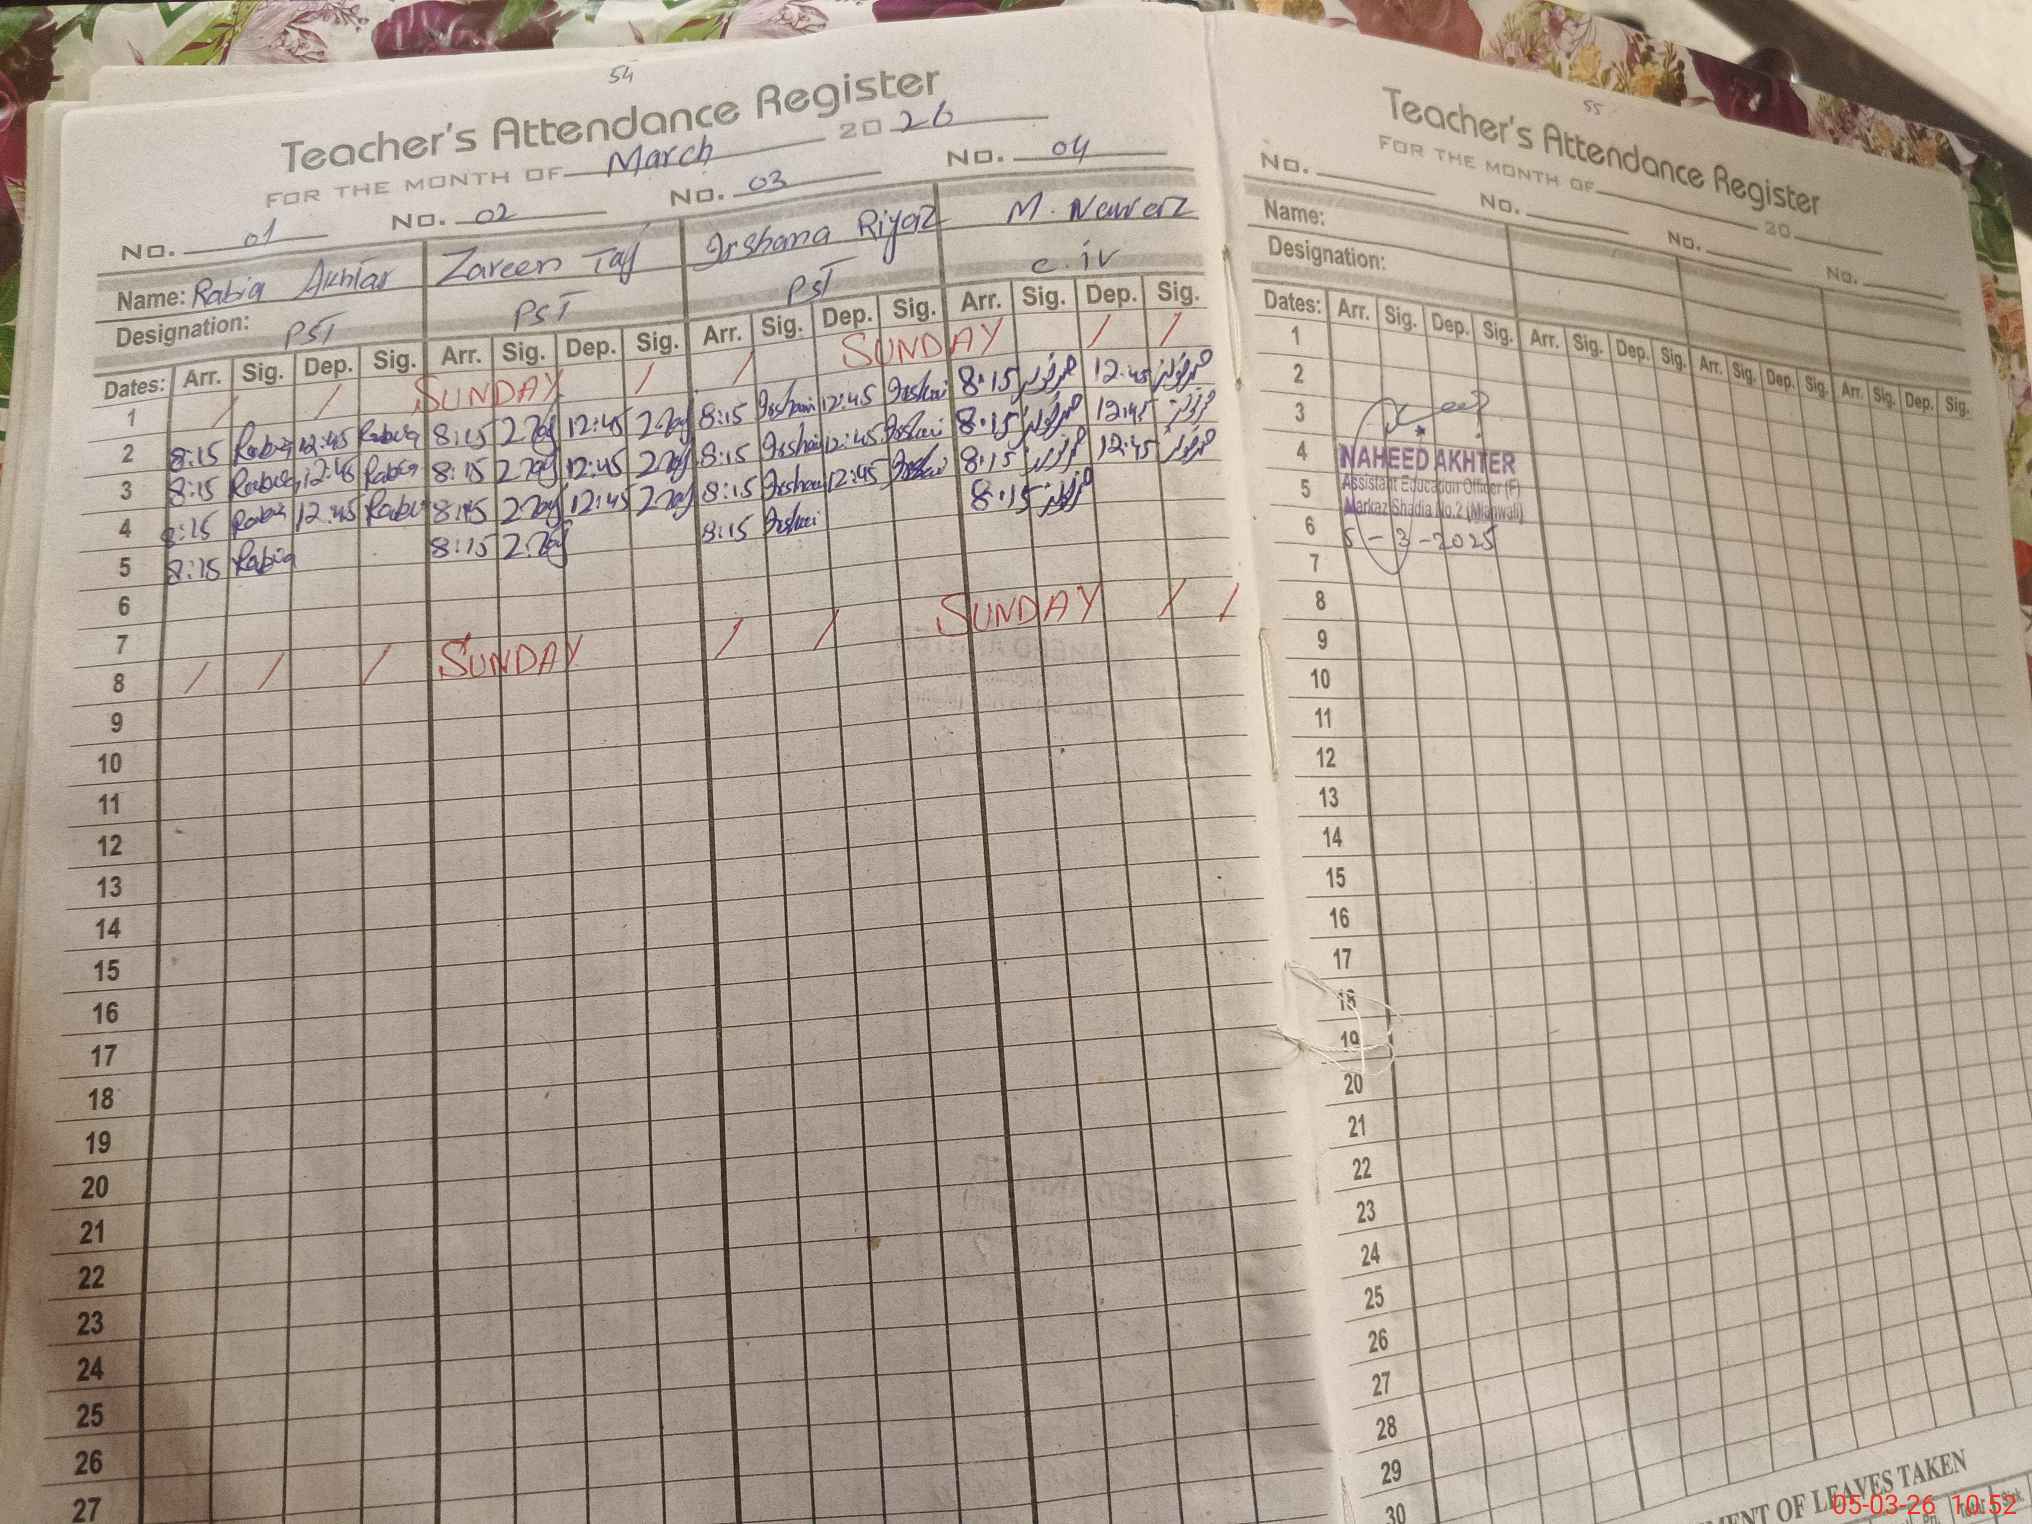 54
Teacher's Attendance Register
FOR THE MONTH OF March 2026
No. 01 No. 02 No. 03 No. 04
Name: Rabia Akhtar Zareen Taj Irshana Riyaz M. Nawaz
Designation: PST PST PST c.iv
Dates: Arr. Sig. Dep. Sig. Arr. Sig. Dep. Sig. Arr. Sig. Dep. Sig. Arr. Sig. Dep. Sig.
1 / / SUNDAY / / SUNDAY / /
2 8:15 Rabia 12:45 Rabia 8:15 Z.Taj 12:45 Z.Taj 8:15 12:45 8:15 12:45
3 8:15 Rabia 12:45 Rabia 8:15 Z.Taj 12:45 Z.Taj 8:15 12:45 8:15 12:45
4 8:15 Rabia 12:45 Rabia 8:15 Z.Taj 12:45 Z.Taj 8:15 12:45 8:15 12:45
5 8:15 Rabia 8:15 Z.Taj 8:15 8:15
6
7
8 / / / SUNDAY / / SUNDAY / /
9
10
11
12
13
14
15
16
17
18
19
20
21
22
23
24
25
26
27
55
Teacher's Attendance Register
FOR THE MONTH OF 20
No. No. No. No.
Name:
Designation:
Dates: Arr. Sig. Dep. Sig. Arr. Sig. Dep. Sig. Arr. Sig. Dep. Sig. Arr. Sig. Dep. Sig.
1
2
3
4 NAHEED AKHTER
5 Assistant Education Officer (F)
Markaz Shadia No.2 (Mianwali)
6 5-3-2025
7
8
9
10
11
12
13
14
15
16
17
18
19
20
21
22
23
24
25
26
27
28
29
30
OF LEAVES TAKEN
05-03-26 10:52